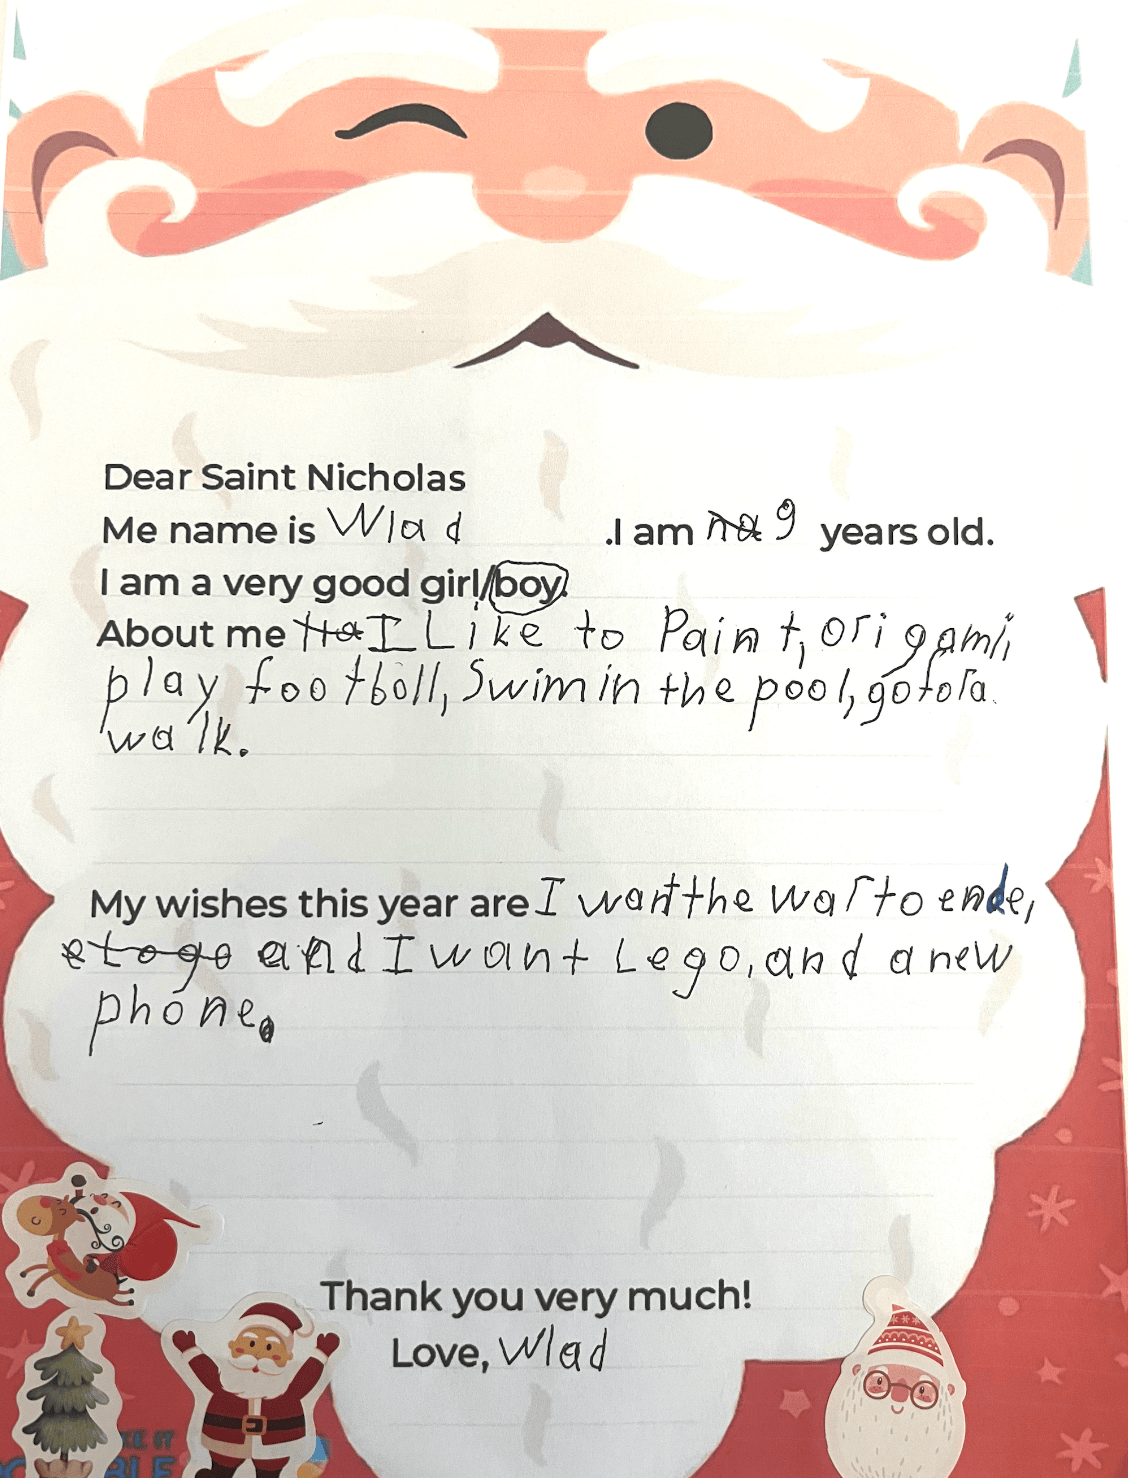 Dear Saint Nicholas
Me name is Wlad .I am na 9 years old.
I am a very good girl/boy.
About me Ha I Like to Paint, origami,
play football, Swim in the pool, go for a
walk.
My wishes this year are I want the war to ende,
etogo and I want Lego, and a new
phone.
Thank you very much!
Love, Wlad